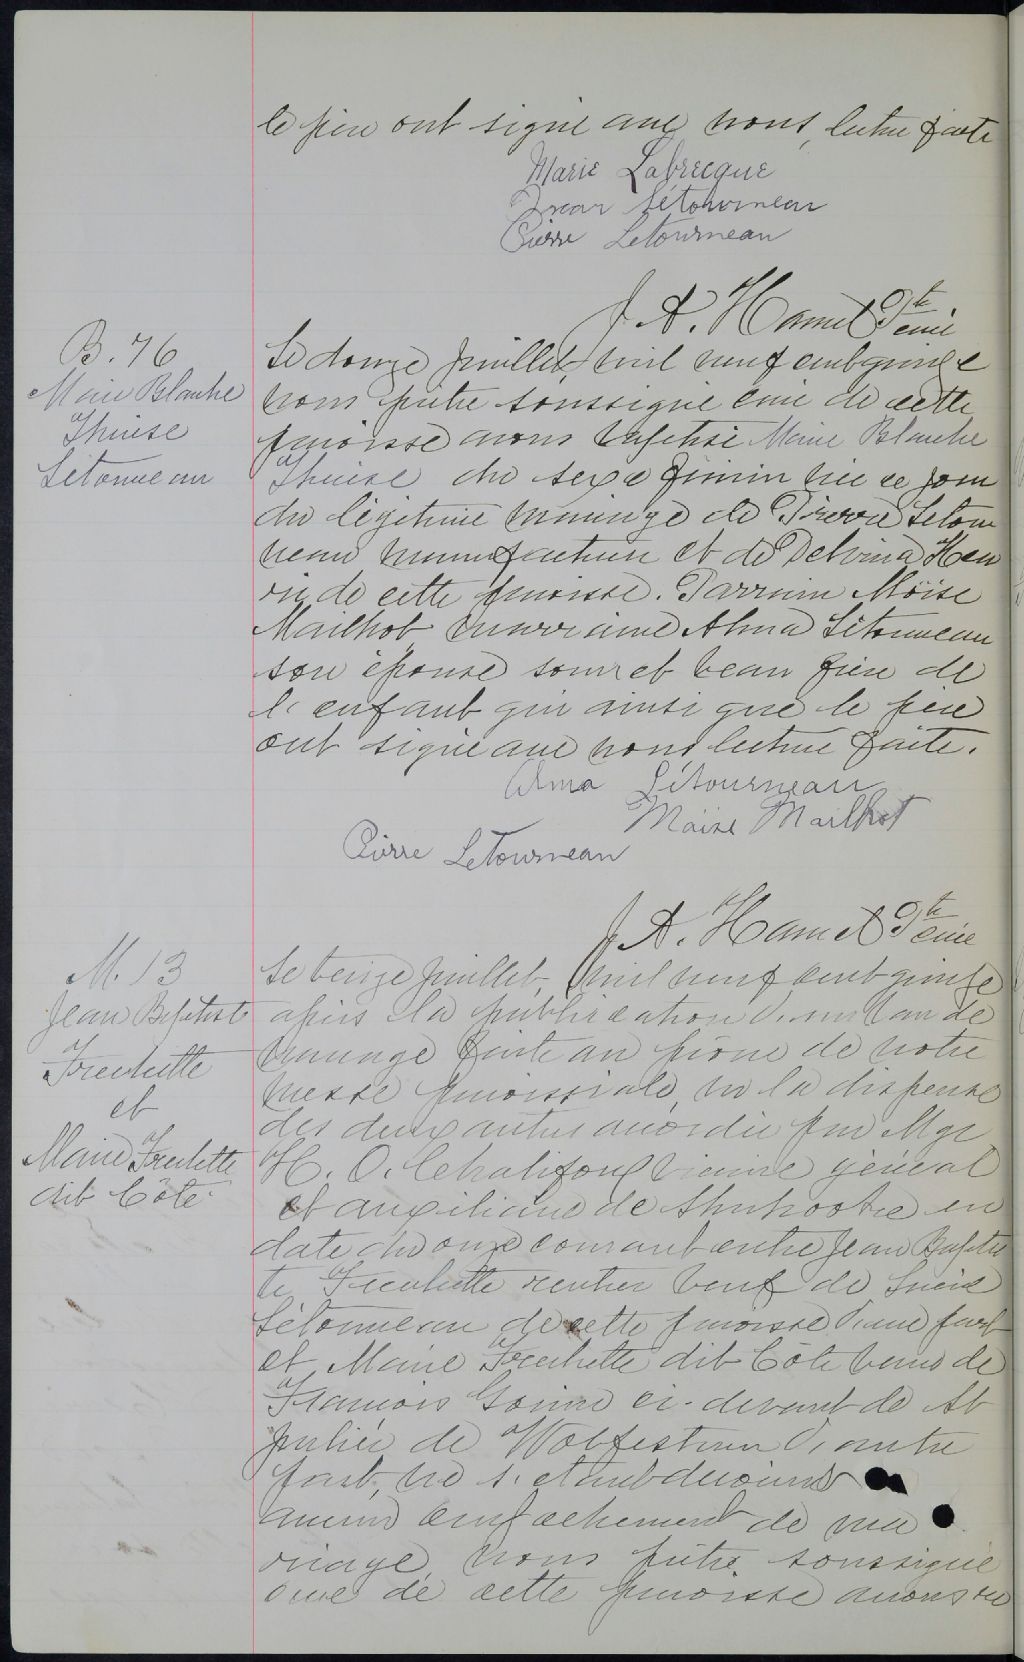 le père ont signé avec nous, lecture faite
Marie Labrecque
Oscar Létourneau
Pierre Letourneau
J. A. Hamel Ptre curé
B. 76
Marie Blanche
Thérèse
Létourneau
Le douze juillet, mil neuf cent quinze
nous prêtre soussigné curé de cette
paroisse avons baptisé Marie Blanche
Thérèse du sexe féminin née ce jour
du légitime mariage de Pierre Letour
neau manufacturier et de Delvina Hen
rie de cette paroisse. Parrain Moïse
Mailhot marraine Alma Létourneau
son épouse soeur et beau frère de
l'enfant qui ainsi que le père
ont signé avec nous, lecture faite.
Alma Létourneau
Moïse Mailhot
Pierre Letourneau
J. A. Hamel Ptre curé
M. 13
Jean Baptiste
Frechette
et
Marie Frechette
dit Côté
Le treize juillet, mil neuf cent quinze
après la publication d'un ban de
mariage faite au prône de notre
messe paroissiale, vu la dispense
des deux autres accordée par Mgr
H. O. Chalifoux vicaire général
et auxiliaire de Sherbrooke en
date du onze courant entre Jean Baptis
te Frechette rentier veuf de
Létourneau de cette paroisse d'une part
et Marie Frechette dit Côté veuve de
François ci-devant de St
Julien de Wolfestown d'autre
part, ne s'étant découvert
aucun empêchement de ma
riage, nous prêtre soussigné
curé de cette paroisse avons re